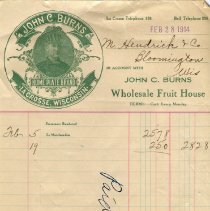 Ice Cream Telephone 398 Bell Telephone 398
JOHN C. BURNS
HOME MADE BRAND
LA CROSSE, WISCONSIN.
FEB 28 1914
M. Hendrick & Co
Bloomington
Wis
IN ACCOUNT WITH
JOHN C. BURNS
Wholesale Fruit House
TERMS:—Cash Every Monday.
Statement Rendered
Feb. 5 To Merchandise 25 78
19 2 50 28 28
Paid